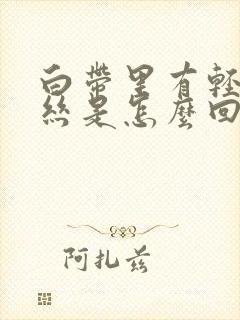 白帶里有輕
絲是怎麼回
阿扎兹